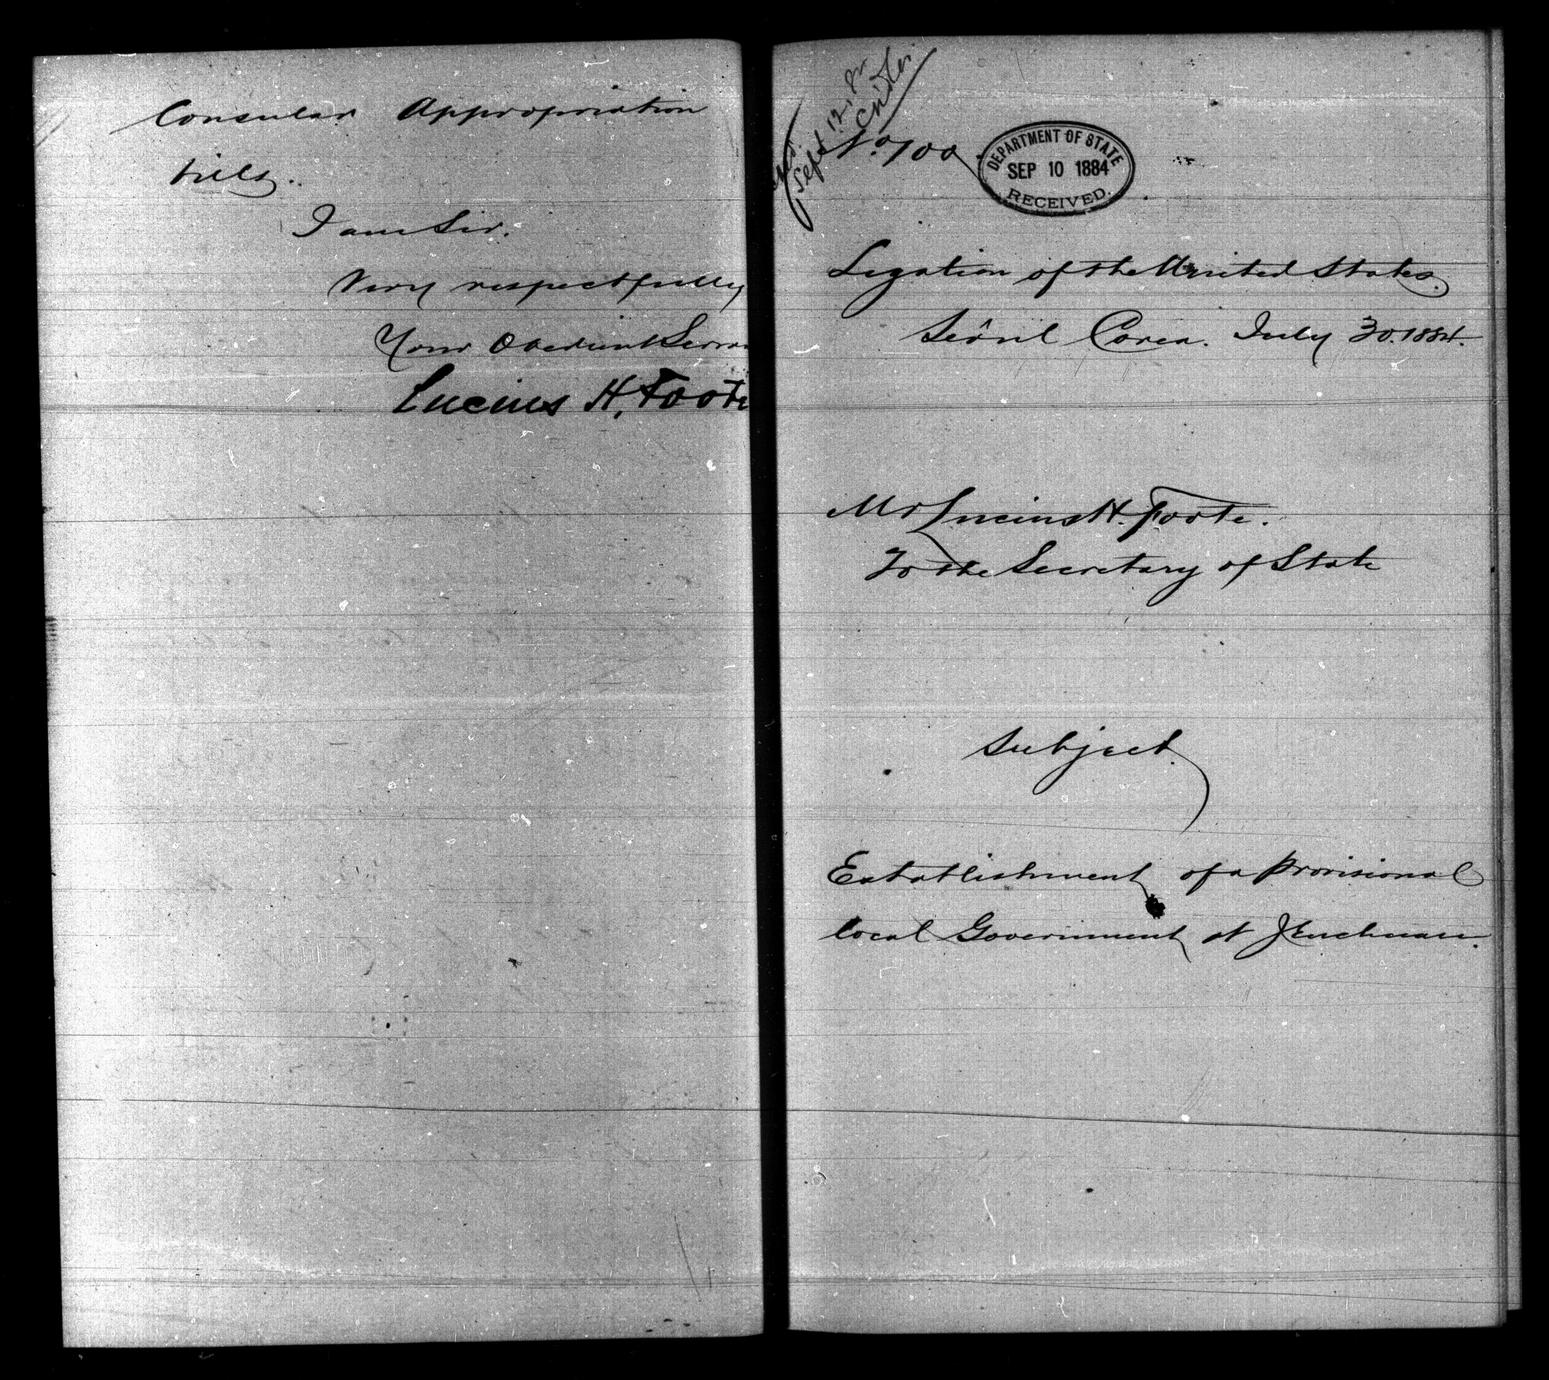 Consular Appropriation
bills.
I am Sir.
Very respectfully
Your Obedient Serva
Lucius H. Foote
Sept 12. 84
No 100
DEPARTMENT OF STATE
SEP 10 1884
RECEIVED.
Legation of the United States.
Seôul Corea. July 30. 1884.
Mr Lucius H. Foote.
To the Secretary of State
Subject.
Establishment of a Provisional
local Government at